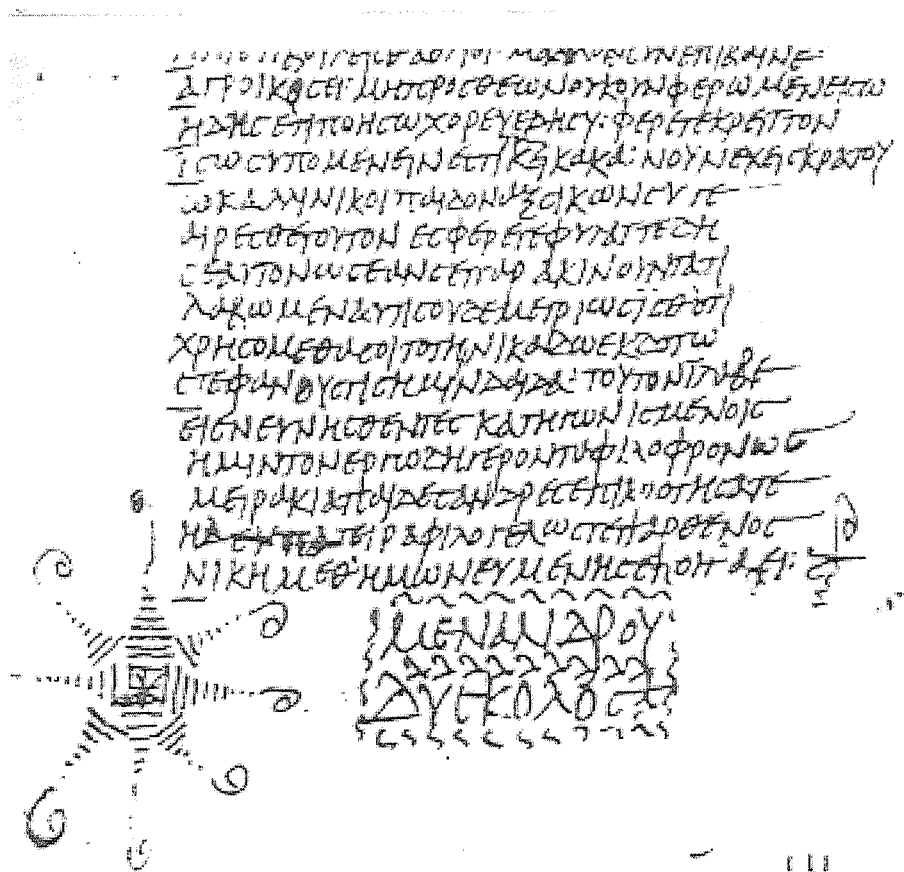 ΑΓΡΟΙΚΟϹΕΙ: ΜΗΠΡΟϹΘΕΩΝΟΥΚΟΥΝΦΕΡΩΜΕΝΕΙϹΩ
ΗΔΗϹΕΤΙΠΟΗϹΩΧΟΡΕΥΕΔΗϹΥ: ΦΕΡΕΤΕΚΡΕΙΤΤΟΝ
ΙϹΩϹΥΠΟΜΕΝΕΙΝΕϹΤΙΚΕΙΚΑΚΑ: ΝΟΥΝΕΧΕΙϹΚΡΑΤΟΥ
ΩΚΑΛΛΙΝΙΚΟΙΠΑΙΔΟΝΑΞϹΙΚΩΝϹΥΓΕ
ΑΙΡΕϹΘΕΤΟΥΤΟΝΕϹΦΕΡΕΤΕΦΥΛΑΤΤΕΔΗ
ϹΕΑΥΤΟΝΩϹΕΑΝϹΕΠΑΡΑΚΙΝΟΥΝΤΑΤΙ
ΛΑΒΩΜΕΝΑΥΤΙϹΟΥΔΕΜΕΤΡΙΩϹΙϹΘΟΤΙ
ΧΡΗϹΟΜΕΘΑϹΟΙΤΟΤΗΝΙΚΑΔΩΕΚΔΟΤΩ
ϹΤΕΦΑΝΟΥϹΤΙϹΗΜΙΝΔΑΙΔΑ: ΤΟΥΤΟΝΙΛΑΒΕ
ΕΙΕΝϹΥΝΗϹΘΕΝΤΕϹΚΑΤΗΓΩΝΙϹΜΕΝΟΙϹ
ΗΜΙΝΤΟΝΕΡΓΩΔΗΓΕΡΟΝΤΑΦΙΛΟΦΡΟΝΩϹ
ΜΕΙΡΑΚΙΑΠΑΙΔΕϹΑΝΔΡΕϹΕΠΙΚΡΟΤΗϹΑΤΕ
ΦΙΛΟΓΕΛΩϹΤΕΠΑΡΘΕΝΟϹ
ΝΙΚΗΜΕΘΗΜΩΝΕΥΜΕΝΗϹΕΠΟΙΤΑΕΙ:
ΜΕΝΑΝΔΡΟΥ
ΔΥϹΚΟΛΟϹ